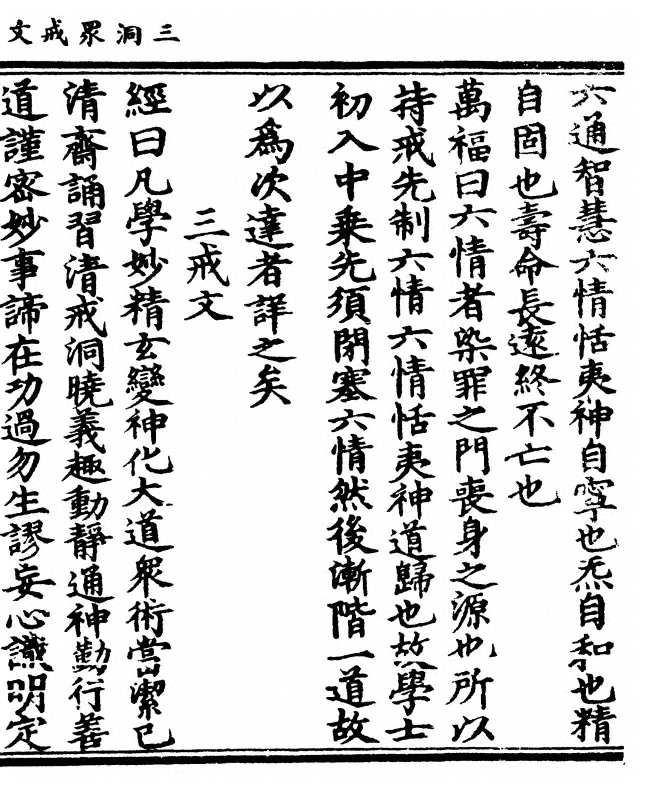 三洞衆戒文
六通智慧六情恬夷神自寧也炁自和也精
自固也壽命長遠終不亡也
萬福曰六情者染罪之門喪身之源也所以
持戒先制六情六情恬夷神道歸也故學士
初入中乗先須閉塞六情然後漸階一道故
以爲次達者詳之矣
三戒文
經曰凡學妙精玄變神化大道衆術當潔已
清齋誦習清戒洞曉義趣動靜通神勤行善
道謹宻妙事諦在功過勿生謬妄心識明定